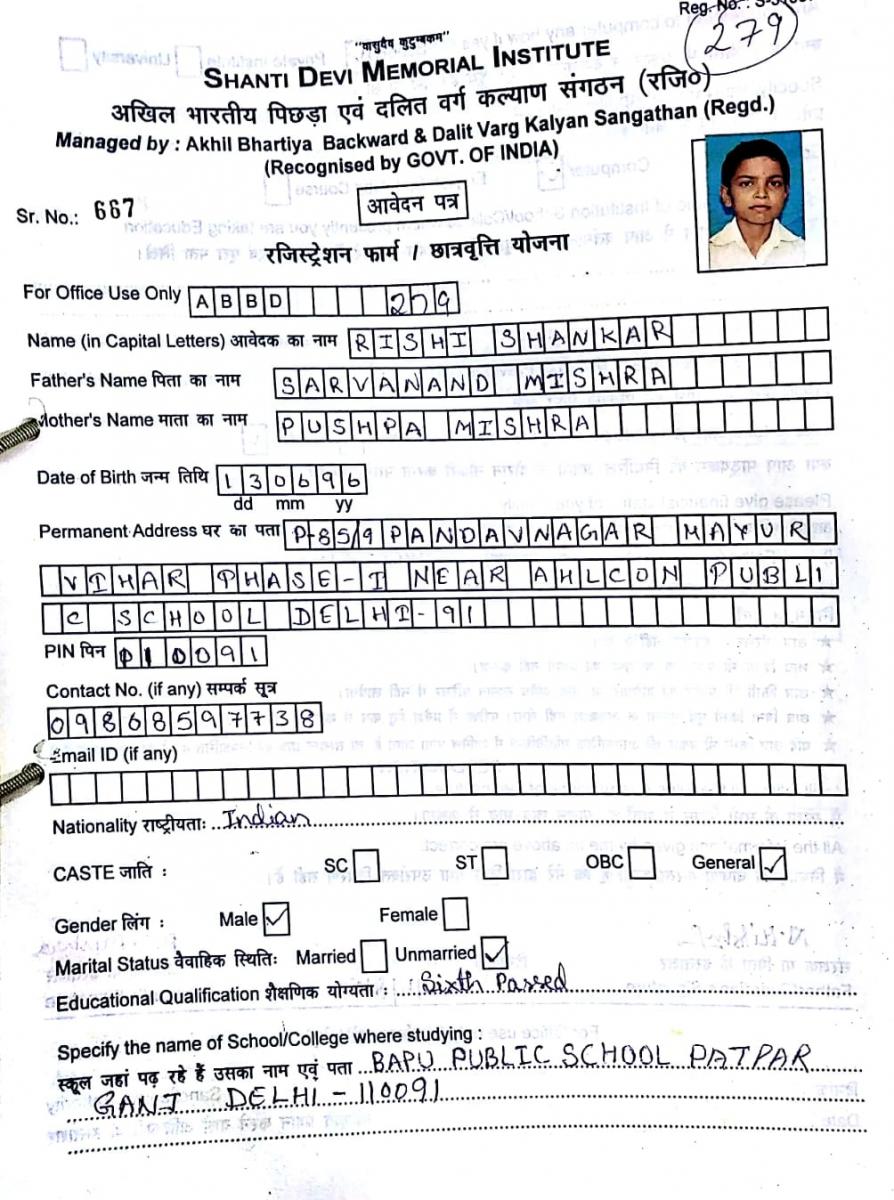 Reg. No. :
279
"वासुदैव कुटुम्बकम"
SHANTI DEVI MEMORIAL INSTITUTE
अखिल भारतीय पिछड़ा एवं दलित वर्ग कल्याण संगठन (रजि०)
Managed by : Akhil Bhartiya Backward & Dalit Varg Kalyan Sangathan (Regd.)
(Recognised by GOVT. OF INDIA)
Sr. No.: 667
आवेदन पत्र
रजिस्ट्रेशन फार्म / छात्रवृत्ति योजना
For Office Use Only ABBD 279
Name (in Capital Letters) आवेदक का नाम RISHI SHANKAR
Father's Name पिता का नाम SARVANAND MISHRA
Mother's Name माता का नाम PUSHPA MISHRA
Date of Birth जन्म तिथि 130696
dd mm yy
Permanent Address घर का पता P-85/9 PANDAVNAGAR MAYUR
VIHAR PHASE-I NEAR AHLCON PUBLI
C SCHOOL DELHI-91
PIN पिन 110091
Contact No. (if any) सम्पर्क सूत्र
09868597738
Email ID (if any)
Nationality राष्ट्रीयताः Indian
CASTE जाति : SC ST OBC General ✓
Gender लिंग : Male ✓ Female
Marital Status वैवाहिक स्थितिः Married Unmarried ✓
Educational Qualification शैक्षणिक योग्यताः Sixth Passed
Specify the name of School/College where studying :
स्कूल जहां पढ़ रहे हैं उसका नाम एवं पता BAPU PUBLIC SCHOOL PATPAR
GANJ DELHI-110091